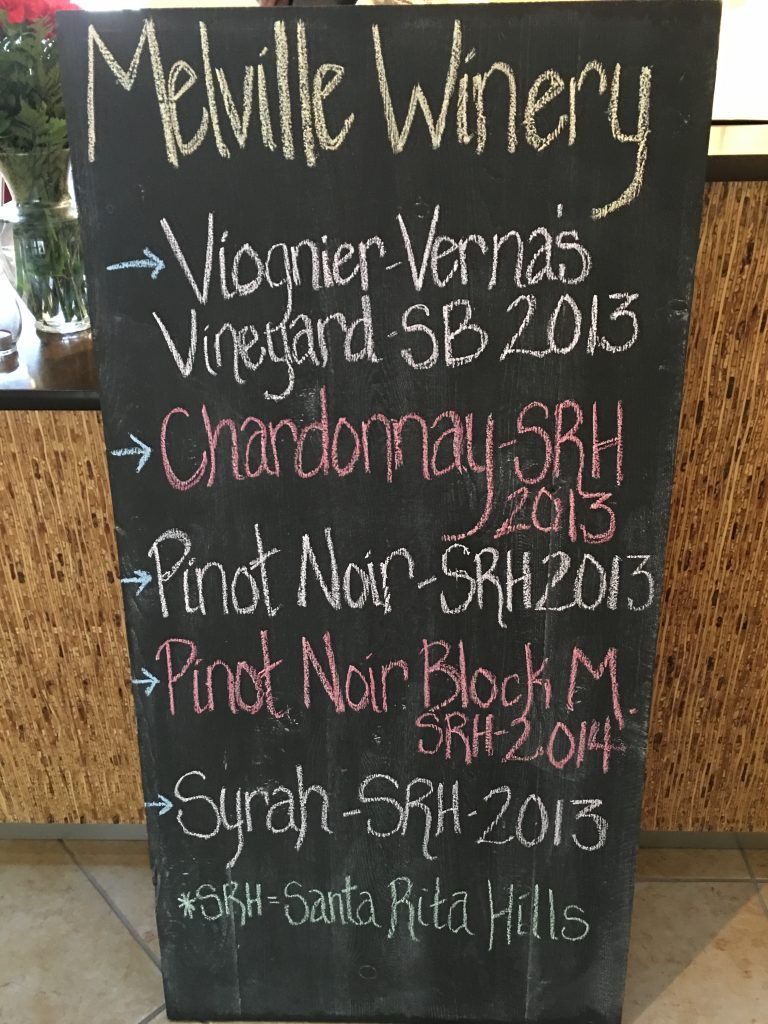 Melville Winery
→ Viognier-Verna's
Vineyard-SB 2013
→ Chardonnay-SRH
2013
→ Pinot Noir-SRH 2013
→ Pinot Noir Block M.
SRH-2014
→ Syrah-SRH-2013
*SRH=Santa Rita Hills